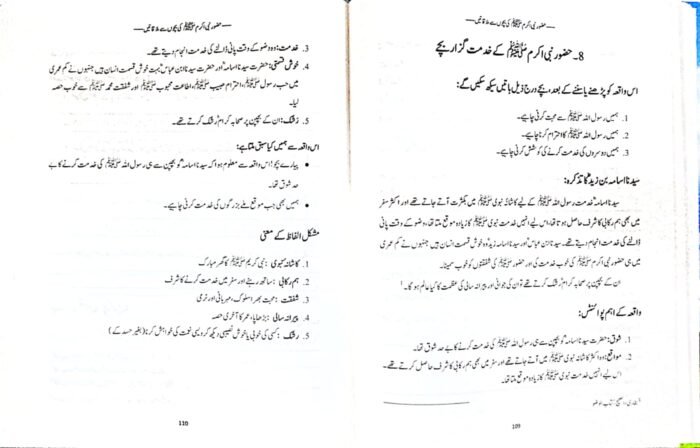 —حضور نبی اکرم ﷺ کی بچوں سے ملاقاتیں—
8۔ حضور نبی اکرم ﷺ کے خدمت گزار بچے
اس واقعہ کو پڑھنے یا سننے کے بعد، بچے درج ذیل باتیں سیکھ سکیں گے:
1. ہمیں رسول اللہ ﷺ سے محبت کرنی چاہیے۔
2. ہمیں رسول اللہ ﷺ کا احترام کرنا چاہیے۔
3. ہمیں دوسروں کی خدمت کرنے کی کوشش کرنی چاہیے۔
سیدنا اسامہ بن زیدؓ کا تذکرہ:
سیدنا اسامہؓ خدمت رسول اللہ ﷺ کے لیے کاشانہ نبوی ﷺ میں بکثرت آتے جاتے تھے اور اکثر سفر
میں بھی ہم رکابی کا شرف حاصل ہوتا تھا، اس لیے انہیں خدمت نبوی ﷺ کا زیادہ موقع ملتا تھا، وضو کے وقت پانی
ڈالنے کی خدمت انجام دیتے تھے۔ سیدنا ابن عباسؓ اور سیدنا اسامہ بن زیدؓ وہ خوش قسمت انسان ہیں جنہوں نے کم عمری
میں ہی حضور نبی اکرم ﷺ کی خوب خدمت کی اور حضور ﷺ کی شفقتوں کو خوب سمیٹا۔
ان کے بچپن پر صحابہ کرامؓ رشک کرتے تھے تو ان کی جوانی اور پیرانہ سالی کی عظمت کا کیا عالم ہو گا۔¹
واقعہ کے اہم پوائنٹس:
1. شوق: حضرت سیدنا اسامہؓ کو بچپن سے ہی رسول اللہ ﷺ کی خدمت کرنے کا بے حد شوق تھا۔
2. مواقع: وہ اکثر کاشانہ نبوی ﷺ میں آتے جاتے تھے اور سفر میں بھی ہم رکابی کا شرف حاصل کرتے تھے۔
اس لیے انہیں خدمت نبوی ﷺ کا زیادہ موقع ملتا تھا۔
¹ بخاری، الصحیح، کتاب الوضو
109
—حضور نبی اکرم ﷺ کی بچوں سے ملاقاتیں—
3. خدمت: وہ وضو کے وقت پانی ڈالنے کی خدمت انجام دیتے تھے۔
4. خوش قسمتی: حضرت سیدنا اسامہؓ اور حضرت سیدنا ابن عباسؓ بہت خوش قسمت انسان ہیں جنہوں نے کم عمری
میں حب رسول ﷺ، احترام حبیب ﷺ، اطاعت محبوب ﷺ اور شفقت محمد ﷺ سے خوب حصہ
لیا۔
5. رشک: ان کے بچپن پر صحابہ کرامؓ رشک کرتے تھے۔
اس واقعہ سے ہمیں کیا سبق ملتا ہے:
• پیارے بچو! اس واقعہ سے معلوم ہوا کہ سیدنا اسامہؓ کو بچپن سے ہی رسول اللہ ﷺ کی خدمت کرنے کا بے
حد شوق تھا۔
• ہمیں بھی جب موقع ملے بزرگوں کی خدمت کرنی چاہیے۔
مشکل الفاظ کے معنی
1. کاشانہ نبوی: نبی کریم ﷺ کا گھر مبارک
2. ہم رکابی: ساتھ رہنے اور سفر میں خدمت کرنے کا شرف
3. شفقت: محبت بھرا سلوک، مہربانی اور نرمی
4. پیرانہ سالی: بڑھاپا، عمر کا آخری حصہ
5. رشک: کسی کی خوبی یا خوش نصیبی دیکھ کر ویسی نعمت کی خواہش کرنا (بغیر حسد کے)
110